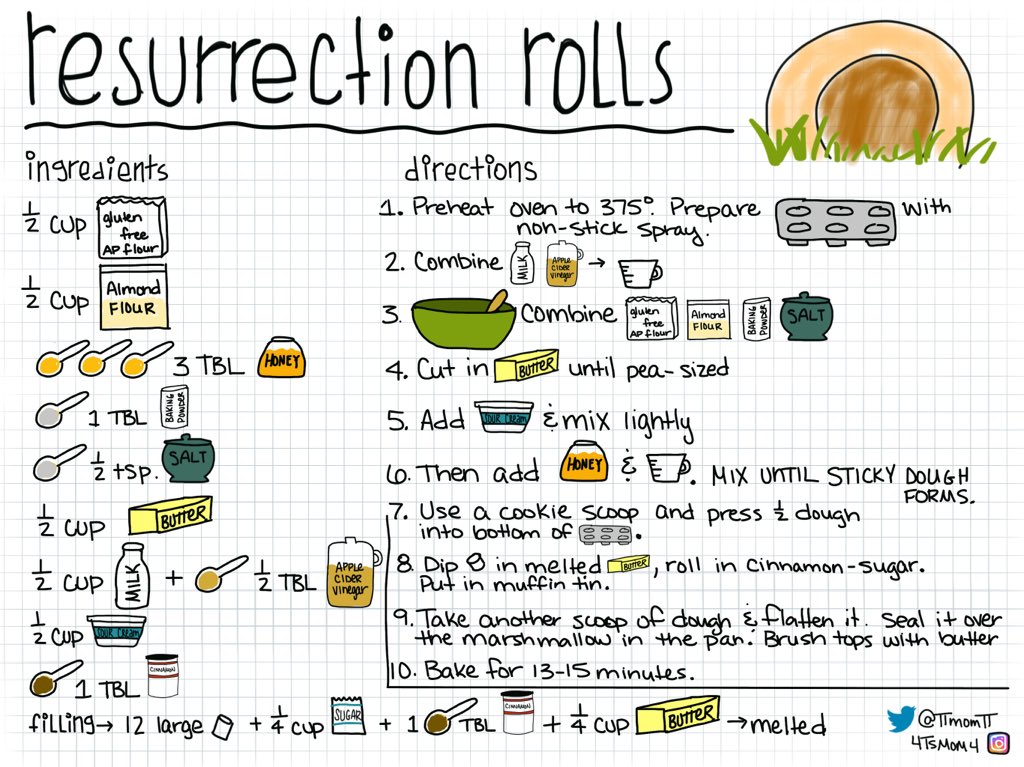 resurrection rolls
ingredients
1/2 cup gluten free AP flour
1/2 cup Almond FLOUR
3 TBL HONEY
1 TBL BAKING POWDER
1/2 tsp. SALT
1/2 cup BUTTER
1/2 cup MILK + 1/2 TBL APPLE CIDER vinegar
1/2 cup SOUR CREAM
1 TBL CINNAMON
directions
1. Preheat oven to 375°. Prepare with
non-stick spray.
2. Combine MILK APPLE CIDER vinegar →
3. Combine gluten free AP flour Almond FLOUR BAKING POWDER SALT
4. Cut in BUTTER until pea-sized
5. Add SOUR CREAM & mix lightly
6. Then add HONEY & . MIX UNTIL STICKY DOUGH
FORMS.
7. Use a cookie scoop and press 1/2 dough
into bottom of .
8. Dip in melted BUTTER, roll in cinnamon-sugar.
Put in muffin tin.
9. Take another scoop of dough & flatten it. Seal it over
the marshmallow in the pan. Brush tops with butter
10. Bake for 13-15 minutes.
filling → 12 large + 1/4 cup SUGAR + 1 TBL CINNAMON + 1/4 cup BUTTER → melted
@TTmomTT
4TsMom4